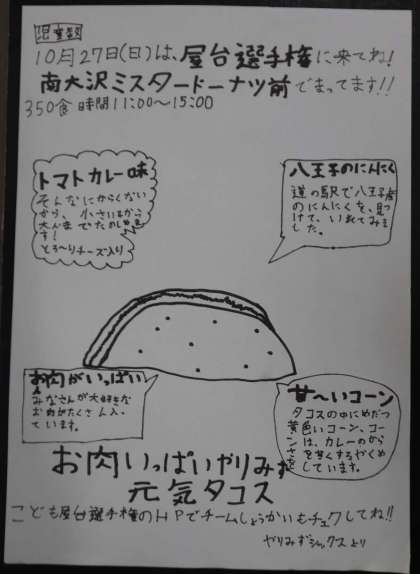 児童数
10月27日(日)は、屋台選手権に来てね!
南大沢ミスタードーナツ前でまってます!!
350食 時間11:00〜15:00
トマトカレー味
そんなにからくない
から、小さい子から
大人まで
す!
とろ〜りチーズ入り
八王子のにんにく
道の駅で八王子産
のにんにくを、見つ
けて、いれてみま
した。
お肉がいっぱい
みなさんが大好きな
お肉がたくさん入っ
ています。
甘〜いコーン
タコスの中にめだつ
黄色いコーン、コー
ンは、カレーのから
さを甘くするやくめ
しています。
お肉いっぱいやりみず
元気タコス
こども屋台選手権のHPでチームしょうかいもチェクしてね!!
やりみずシックスより